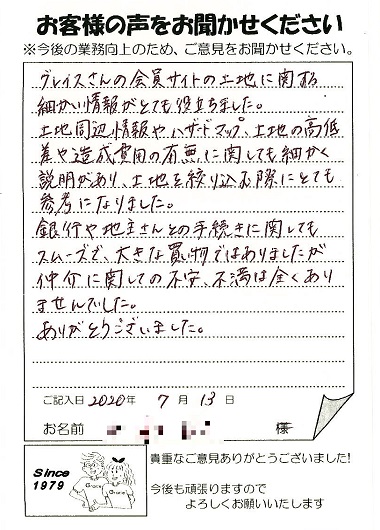 お客様の声をお聞かせください
※今後の業務向上のため、ご意見をお聞かせください。
グレイスさんの会員サイトの土地に関する
細かい情報がとても役立ちました。
土地周辺情報やハザードマップ、土地の高低
差や造成費用の有無に関しても細かく
説明があり、土地を絞り込む際にとても
参考になりました。
銀行や地主さんとの手続きに関しても
スムーズで、大きな買い物ではありましたが
仲介に関しての不安、不満は全くあり
ませんでした。
ありがとうございました。
ご記入日 2020年 7月 13日
お名前 様
Since
1979
Grace
Grace
貴重なご意見ありがとうございました!
今後も頑張りますので
よろしくお願いいたします